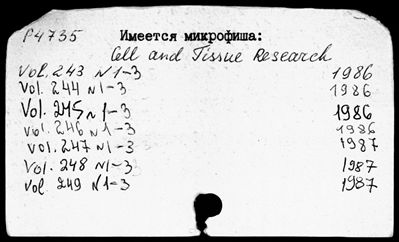 P4735 Имеется микрофиша:
Cell and Tissue Research
Vol. 243 N 1-3 1986
Vol. 244 N 1-3 1986
Vol. 245 N 1-3 1986
Vol. 246 N 1-3 1986
Vol. 247 N 1-3 1987
Vol. 248 N 1-3 1987
Vol. 249 N 1-3 1987